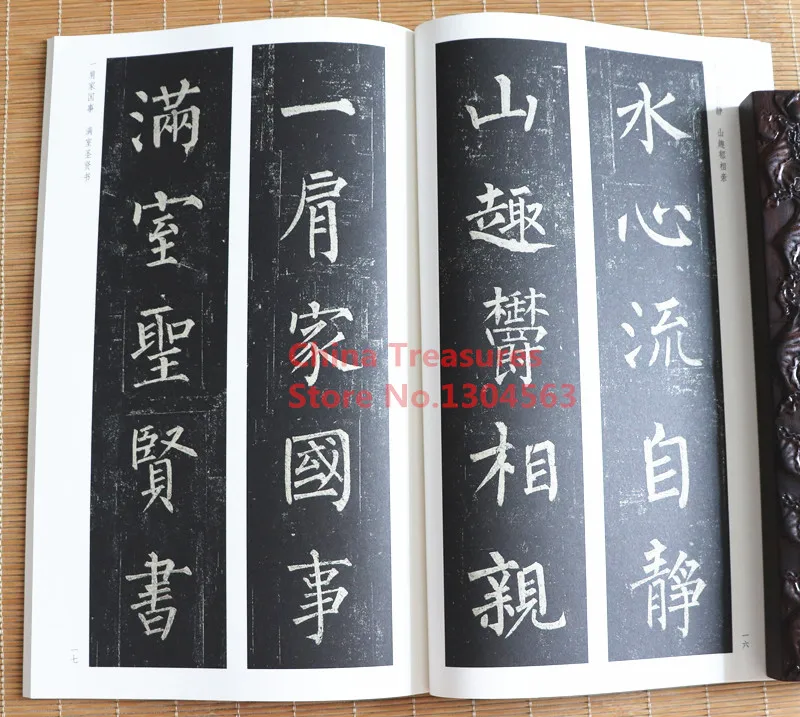 水心流自靜
山趣鬱相親
静 山趣郁相亲
一六
一肩家國事
滿室聖賢書
一肩家国事 满室圣贤书
一七
China Treasures
Store No.1304563